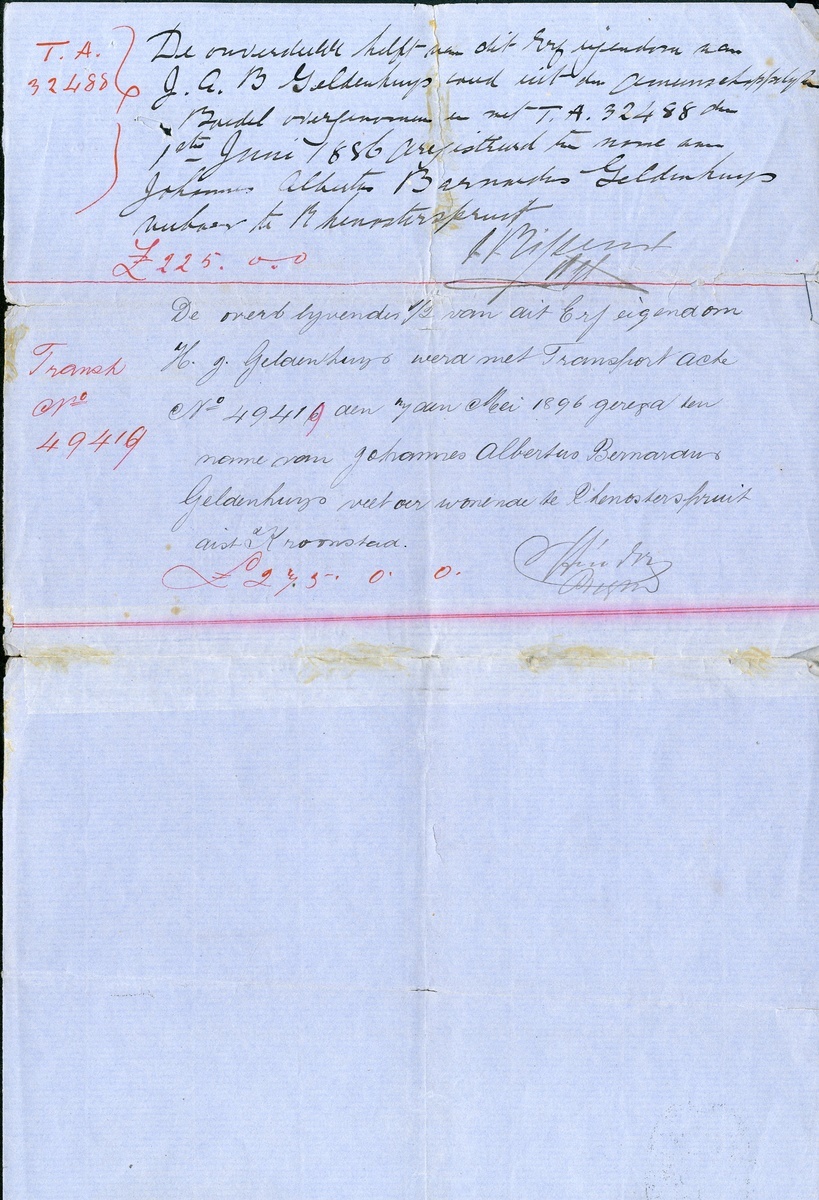 T. A.
32488
De onverdeelde helft van dit Erf eigendom van
J. A. B Geldenhuys werd uit den Gemeenschappelyke
Boedel overgenomen en met T. A. 32488 den
1ste Juni 1886 Geregistreerd ten name van
Johannes Albertus Barnardus Geldenhuys
veeboer te Rhenosterspruit
£ 225. 0. 0
De overblyvendes 1/2 van dit Erf eigendom
Transp
No
49419
H. J. Geldenhuys werd met Transport Acte
No 49419 den 7 den Mei 1896 gereg'd ten
name van Johannes Albertus Bernardus
Geldenhuys veeboer wonende te Rhenosterspruit
dist Kroonstad.
£ 275. 0. 0.